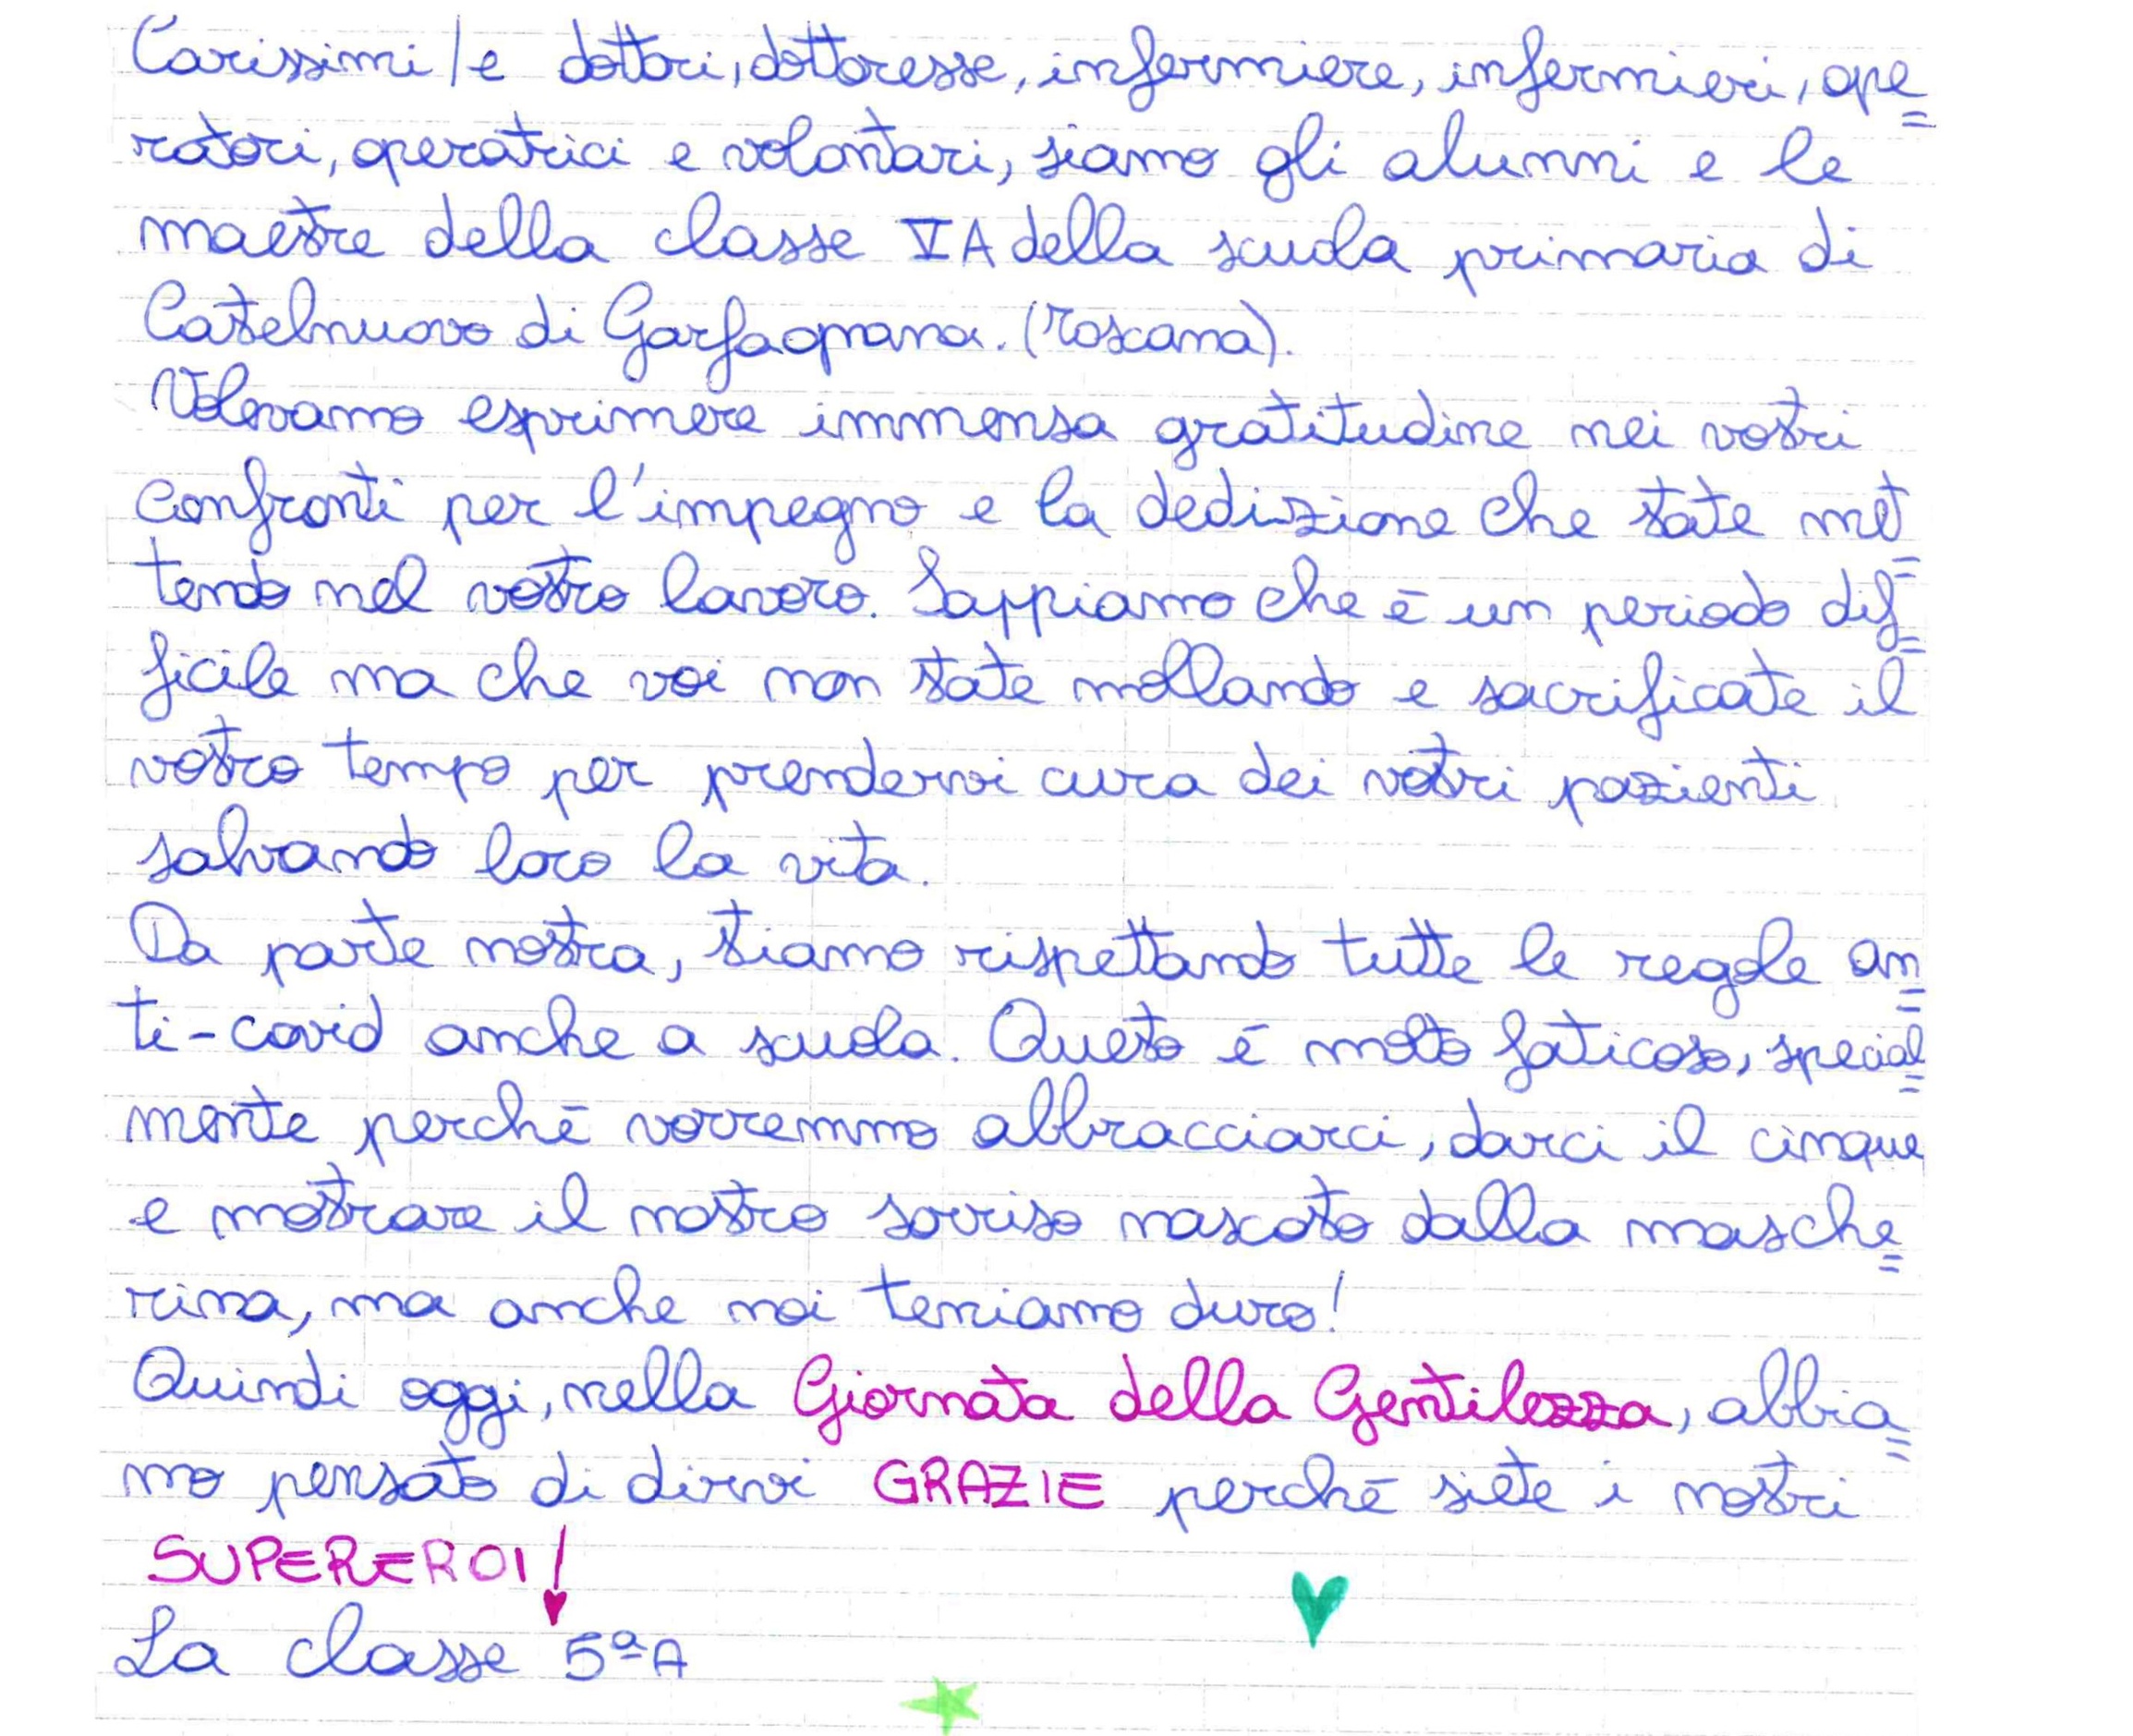 Carissimi/e dottori, dottoresse, infermiere, infermieri, ope=
ratori, operatrici e volontari, siamo gli alunni e le
maestre della classe VA della scuola primaria di
Castelnuovo di Garfagnana. (Toscana).
Volevamo esprimere immensa gratitudine nei vostri
confronti per l'impegno e la dedizione che state met=
tendo nel vostro lavoro. Sappiamo che è un periodo dif=
ficile ma che voi non state mollando e sacrificate il
vostro tempo per prendervi cura dei vostri pazienti
salvando loro la vita.
Da parte nostra, stiamo rispettando tutte le regole an=
ti-covid anche a scuola. Questo è molto faticoso, special=
mente perché vorremmo abbracciarci, darci il cinque
e mostrare il nostro sorriso nascosto dalla masche=
rina, ma anche noi teniamo duro!
Quindi oggi, nella Giornata della Gentilezza, abbia=
mo pensato di dirvi GRAZIE perché siete i nostri
SUPEREROI!
La classe 5ªA